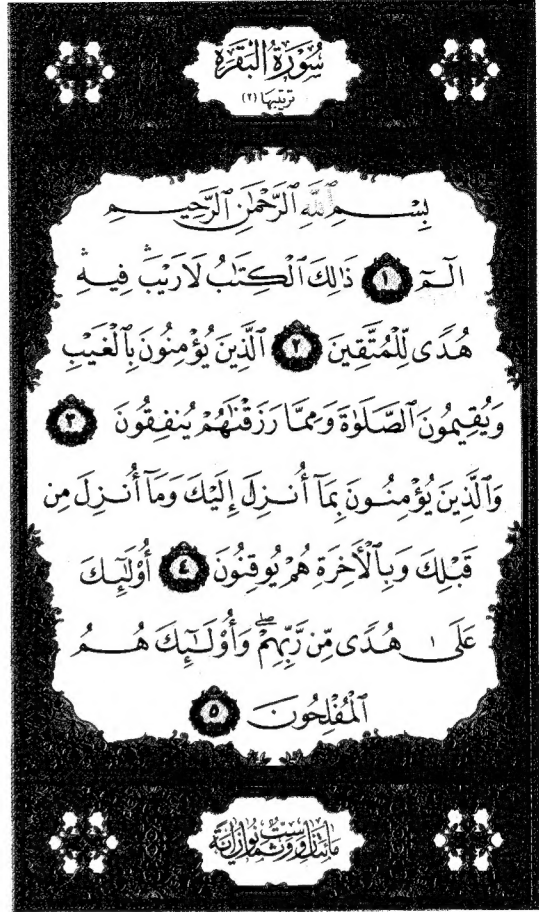 سُورَةُ الْبَقَرَةِ
ترتيبها (٢)
بِسْمِ ٱللَّهِ ٱلرَّحْمَٰنِ ٱلرَّحِيمِ
الٓمٓ ١ ذَٰلِكَ ٱلْكِتَٰبُ لَا رَيْبَ ۛ فِيهِ ۛ
هُدًى لِّلْمُتَّقِينَ ٢ ٱلَّذِينَ يُؤْمِنُونَ بِٱلْغَيْبِ
وَيُقِيمُونَ ٱلصَّلَوٰةَ وَمِمَّا رَزَقْنَٰهُمْ يُنفِقُونَ ٣
وَٱلَّذِينَ يُؤْمِنُونَ بِمَآ أُنزِلَ إِلَيْكَ وَمَآ أُنزِلَ مِن
قَبْلِكَ وَبِٱلْأَخِرَةِ هُمْ يُوقِنُونَ ٤ أُوْلَٰٓئِكَ
عَلَىٰ هُدًى مِّن رَّبِّهِمْ ۖ وَأُوْلَٰٓئِكَ هُمُ
ٱلْمُفْلِحُونَ ٥
مائتان وست وثمانون آية